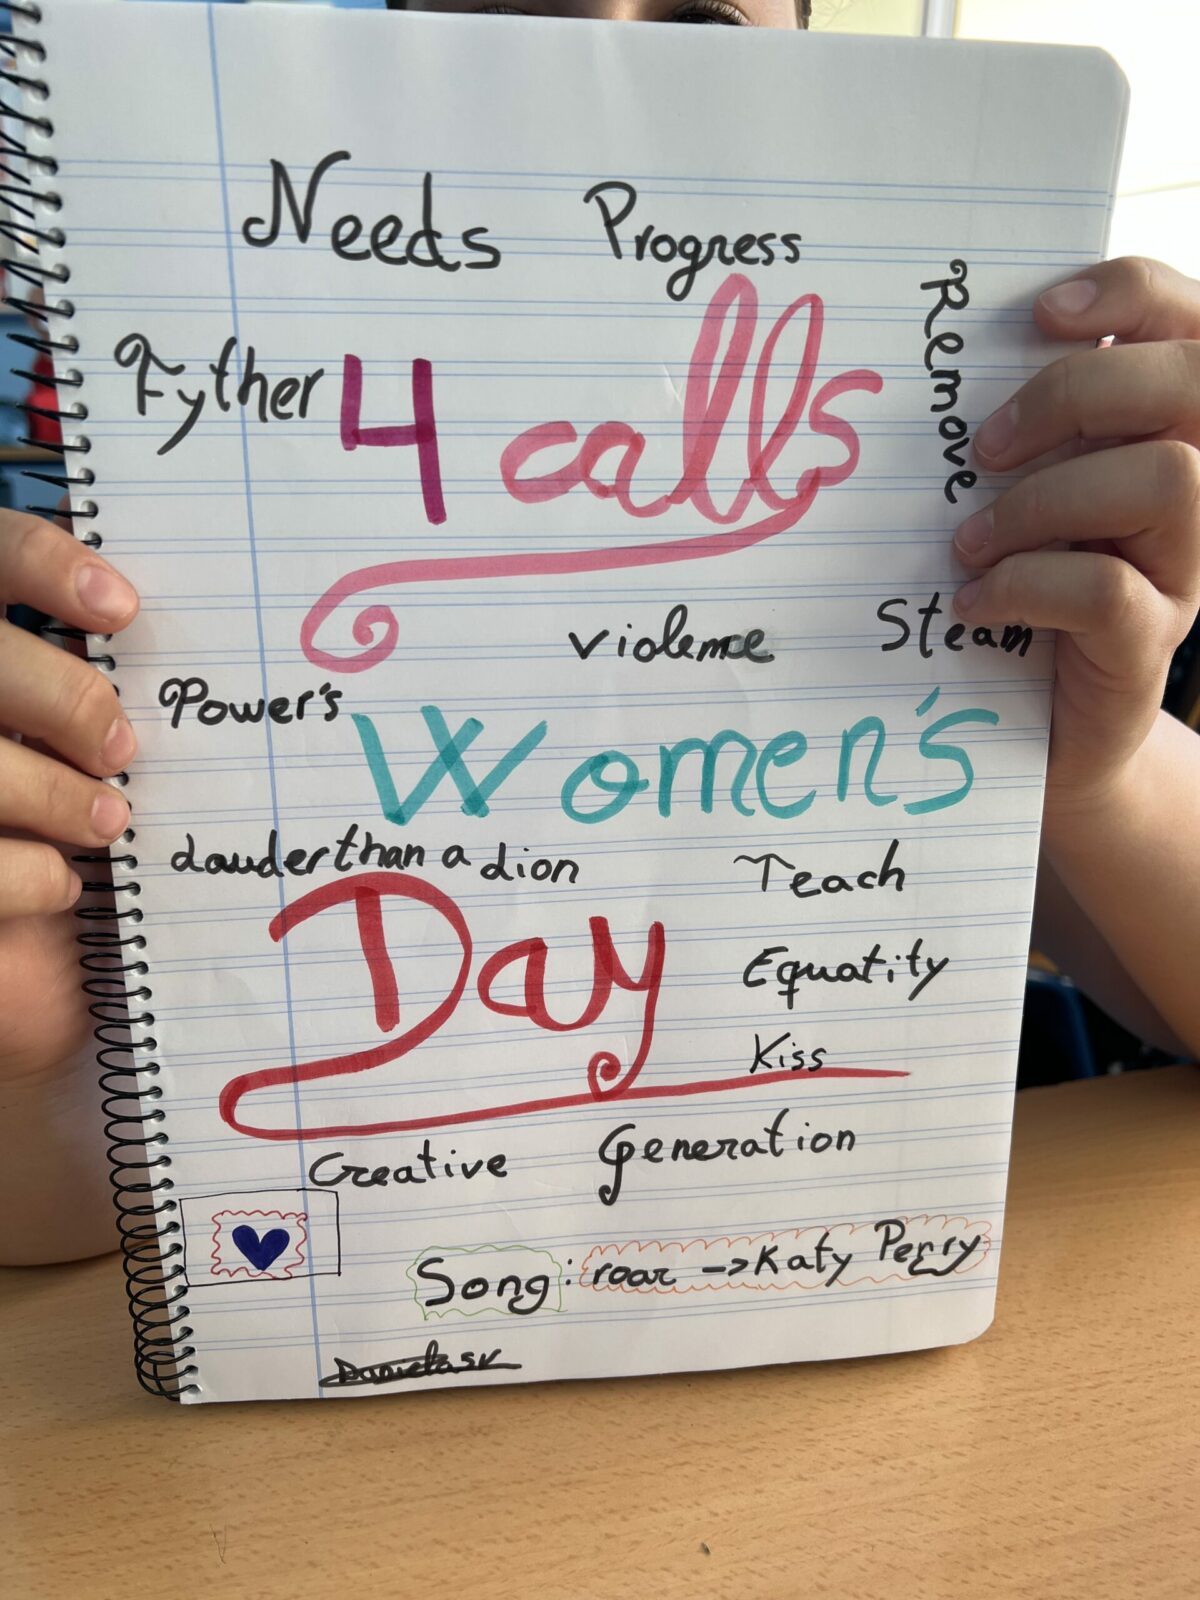 Needs Progress
Remove
Fyther 4 calls
violence Steam
Power's Women's
Lauder than a Lion
Teach
Day
Equatity
Kiss
Creative Generation
Song: roar -> Katy Perry